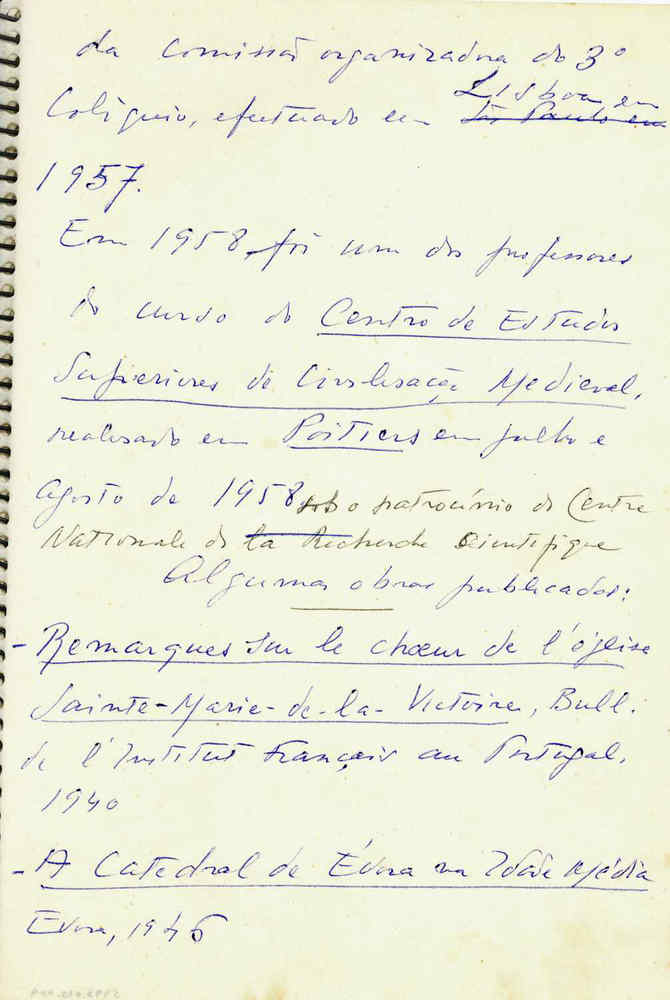 da comissão organizadora do 3º
Lisboa em
Colóquio, efectuado em São Paulo em
1957.
Em 1958, foi um dos professores
do curso do Centro de Estudos
Superiores de Civilização Medieval,
realizado em Poitiers em julho e
Agosto de 1958 sob o patrocínio do Centre
Nationale de la Recherche Scientifique
Algumas obras publicadas:
- Remarques sur le chœur de l'église
Sainte-Marie-de-la-Victoire, Bull.
de l'Institut Français au Portugal.
1940
- A Catedral de Évora na Idade Média
Evora, 1946